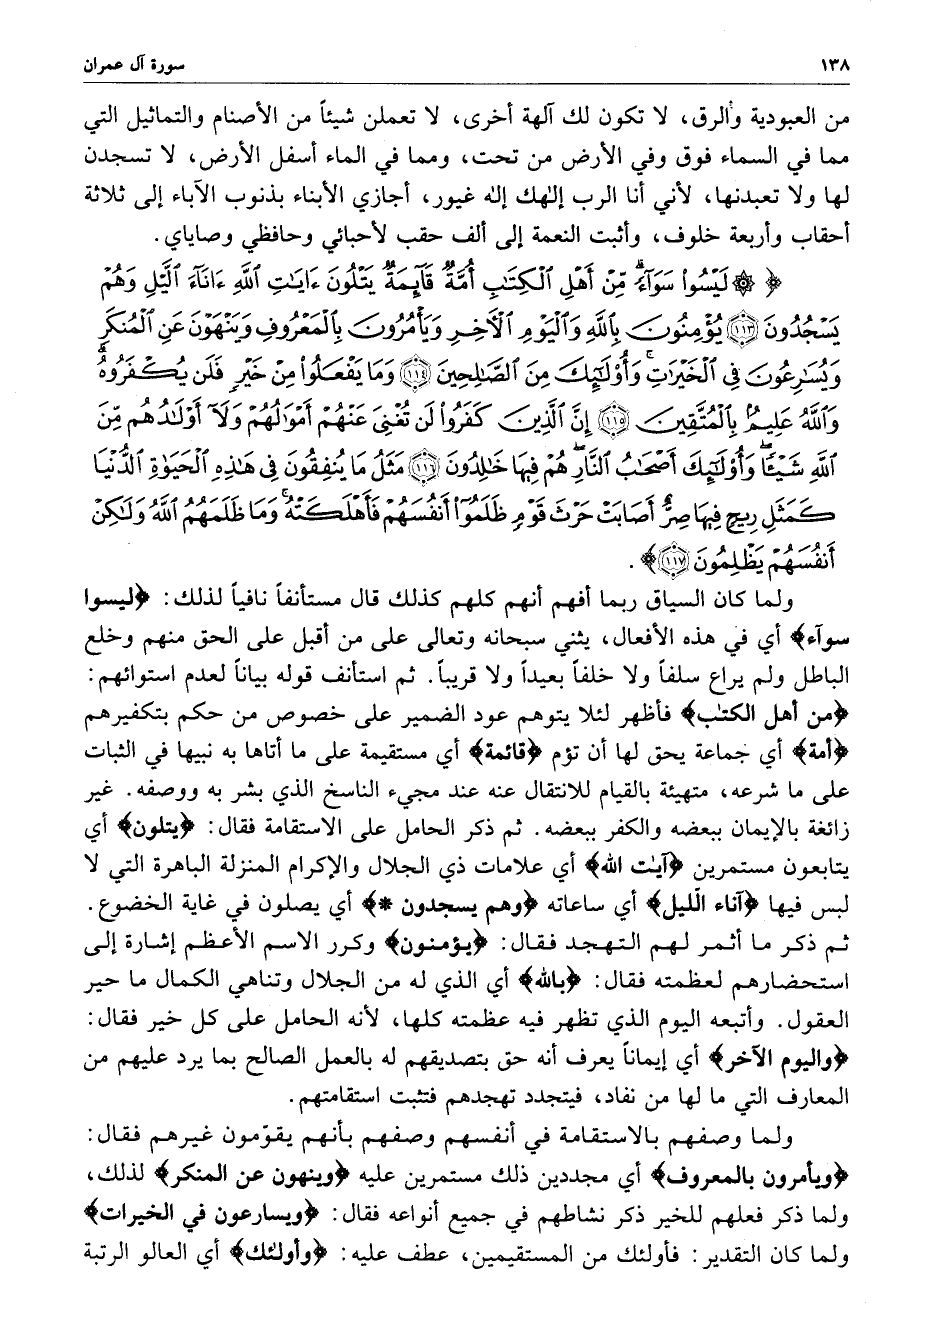 ١٣٨ سورة آل عمران
من العبودية والرق، لا تكون لك آلهة أخرى، لا تعملن شيئاً من الأصنام والتماثيل التي
مما في السماء فوق وفي الأرض من تحت، ومما في الماء أسفل الأرض، لا تسجدن
لها ولا تعبدنها، لأني أنا الرب إلٰهك إلٰه غيور، أجازي الأبناء بذنوب الآباء إلى ثلاثة
أحقاب وأربعة خلوف، وأثبت النعمة إلى ألف حقب لأحبائي وحافظي وصاياي.
﴿ ۞ لَيْسُوا۟ سَوَآءً ۗ مِّنْ أَهْلِ ٱلْكِتَٰبِ أُمَّةٌ قَآئِمَةٌ يَتْلُونَ ءَايَٰتِ ٱللَّهِ ءَانَآءَ ٱلَّيْلِ وَهُمْ
يَسْجُدُونَ ١١٣ يُؤْمِنُونَ بِٱللَّهِ وَٱلْيَوْمِ ٱلْءَاخِرِ وَيَأْمُرُونَ بِٱلْمَعْرُوفِ وَيَنْهَوْنَ عَنِ ٱلْمُنكَرِ
وَيُسَٰرِعُونَ فِى ٱلْخَيْرَٰتِ ۚ وَأُو۟لَٰٓئِكَ مِنَ ٱلصَّٰلِحِينَ ١١٤ وَمَا يَفْعَلُوا۟ مِنْ خَيْرٍ فَلَن يُكْفَرُوهُ ۗ
وَٱللَّهُ عَلِيمٌۢ بِٱلْمُتَّقِينَ ١١٥ إِنَّ ٱلَّذِينَ كَفَرُوا۟ لَن تُغْنِىَ عَنْهُمْ أَمْوَٰلُهُمْ وَلَآ أَوْلَٰدُهُم مِّنَ
ٱللَّهِ شَيْـًٔا ۖ وَأُو۟لَٰٓئِكَ أَصْحَٰبُ ٱلنَّارِ ۚ هُمْ فِيهَا خَٰلِدُونَ ١١٦ مَثَلُ مَا يُنفِقُونَ فِى هَٰذِهِ ٱلْحَيَوٰةِ ٱلدُّنْيَا
كَمَثَلِ رِيحٍ فِيهَا صِرٌّ أَصَابَتْ حَرْثَ قَوْمٍ ظَلَمُوٓا۟ أَنفُسَهُمْ فَأَهْلَكَتْهُ ۚ وَمَا ظَلَمَهُمُ ٱللَّهُ وَلَٰكِنْ
أَنفُسَهُمْ يَظْلِمُونَ ١١٧﴾.
ولما كان السياق ربما أفهم أنهم كلهم كذلك قال مستأنفاً نافياً لذلك: ﴿ليسوا
سوآء﴾ أي في هذه الأفعال، يثني سبحانه وتعالى على من أقبل على الحق منهم وخلع
الباطل ولم يراع سلفاً ولا خلفاً بعيداً ولا قريباً. ثم استأنف قوله بياناً لعدم استوائهم:
﴿من أهل الكتٰب﴾ فأظهر لئلا يتوهم عود الضمير على خصوص من حكم بتكفيرهم
﴿أمة﴾ أي جماعة يحق لها أن تؤم ﴿قائمة﴾ أي مستقيمة على ما أتاها به نبيها في الثبات
على ما شرعه، متهيئة بالقيام للانتقال عنه عند مجيء الناسخ الذي بشر به ووصفه. غير
زائغة بالإيمان ببعضه والكفر ببعضه. ثم ذكر الحامل على الاستقامة فقال: ﴿يتلون﴾ أي
يتابعون مستمرين ﴿آيٰت الله﴾ أي علامات ذي الجلال والإكرام المنزلة الباهرة التي لا
لبس فيها ﴿آناء الّيل﴾ أي ساعاته ﴿وهم يسجدون *﴾ أي يصلون في غاية الخضوع.
ثم ذكر ما أثمر لهم التهجد فقال: ﴿يؤمنون﴾ وكرر الاسم الأعظم إشارة إلى
استحضارهم لعظمته فقال: ﴿بالله﴾ أي الذي له من الجلال وتناهي الكمال ما حير
العقول. وأتبعه اليوم الذي تظهر فيه عظمته كلها، لأنه الحامل على كل خير فقال:
﴿واليوم الآخر﴾ أي إيماناً يعرف أنه حق بتصديقهم له بالعمل الصالح بما يرد عليهم من
المعارف التي ما لها من نفاد، فيتجدد تهجدهم فتثبت استقامتهم.
ولما وصفهم بالاستقامة في أنفسهم وصفهم بأنهم يقوّمون غيرهم فقال:
﴿ويأمرون بالمعروف﴾ أي مجددين ذلك مستمرين عليه ﴿وينهون عن المنكر﴾ لذلك،
ولما ذكر فعلهم للخير ذكر نشاطهم في جميع أنواعه فقال: ﴿ويسارعون في الخيرات﴾
ولما كان التقدير: فأولئك من المستقيمين، عطف عليه: ﴿وأولٰئك﴾ أي العالو الرتبة